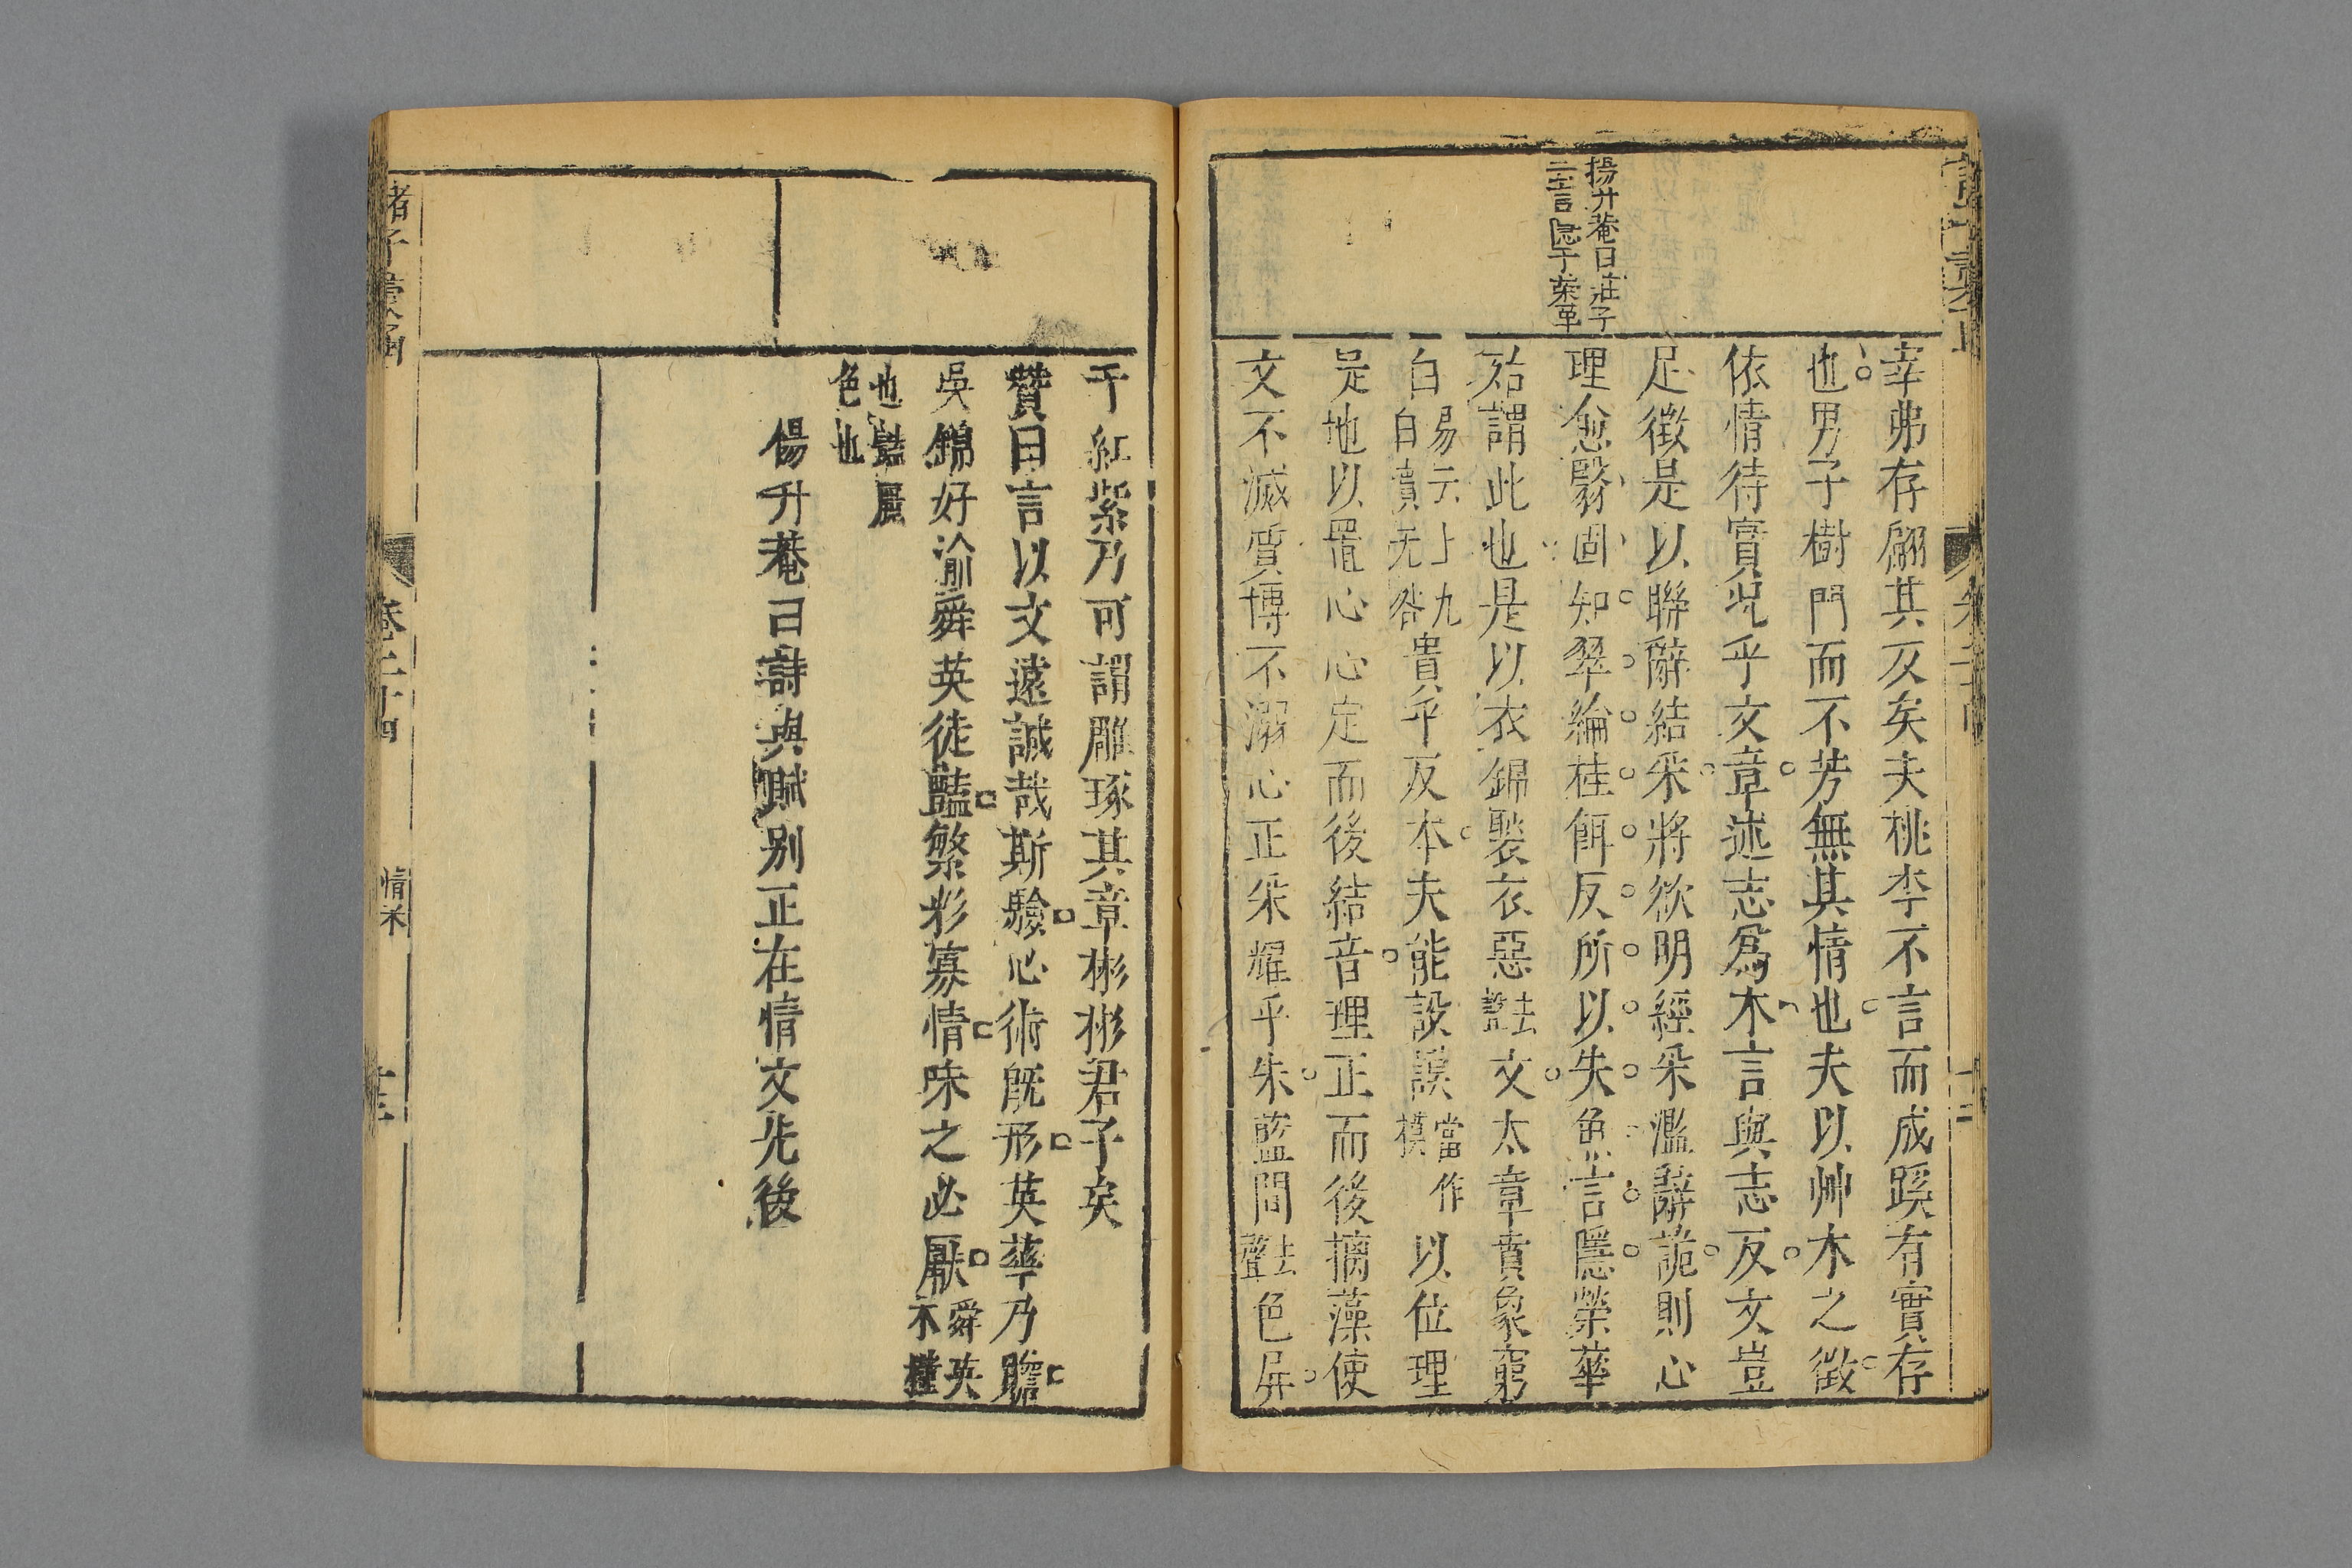 楊升菴曰莊子
二言隱于榮華
宰弗存翩其反矣夫桃李不言而成蹊有實存
也男子樹門而不芳無其情也夫以艸木之微
依情待實况乎文章述志爲本言與志反文豈
足徵是以聯辭結采將欲明經采濫辭詭則心
理愈翳固知翠綸桂餌反所以失魚言隱榮華
殆謂此也是以衣錦褧衣惡去聲文太章賁象窮
白易云上九白賁无咎貴乎反本夫能設謨當作模以位理
是地以置心心定而後結音理正而後摛藻使
文不滅質博不溺心正采耀乎朱藍間去聲色屏
于紅紫乃可謂雕琢其章彬彬君子矣
贊曰言以文遠誠哉斯驗心術旣形英華乃贍
吳錦好渝舜英徒豔繁彩寡情味之必厭舜英木槿
也豔屬色也
楊升菴曰詩與賦别正在情文先後
諸子彙函
卷二十四
情采
十三